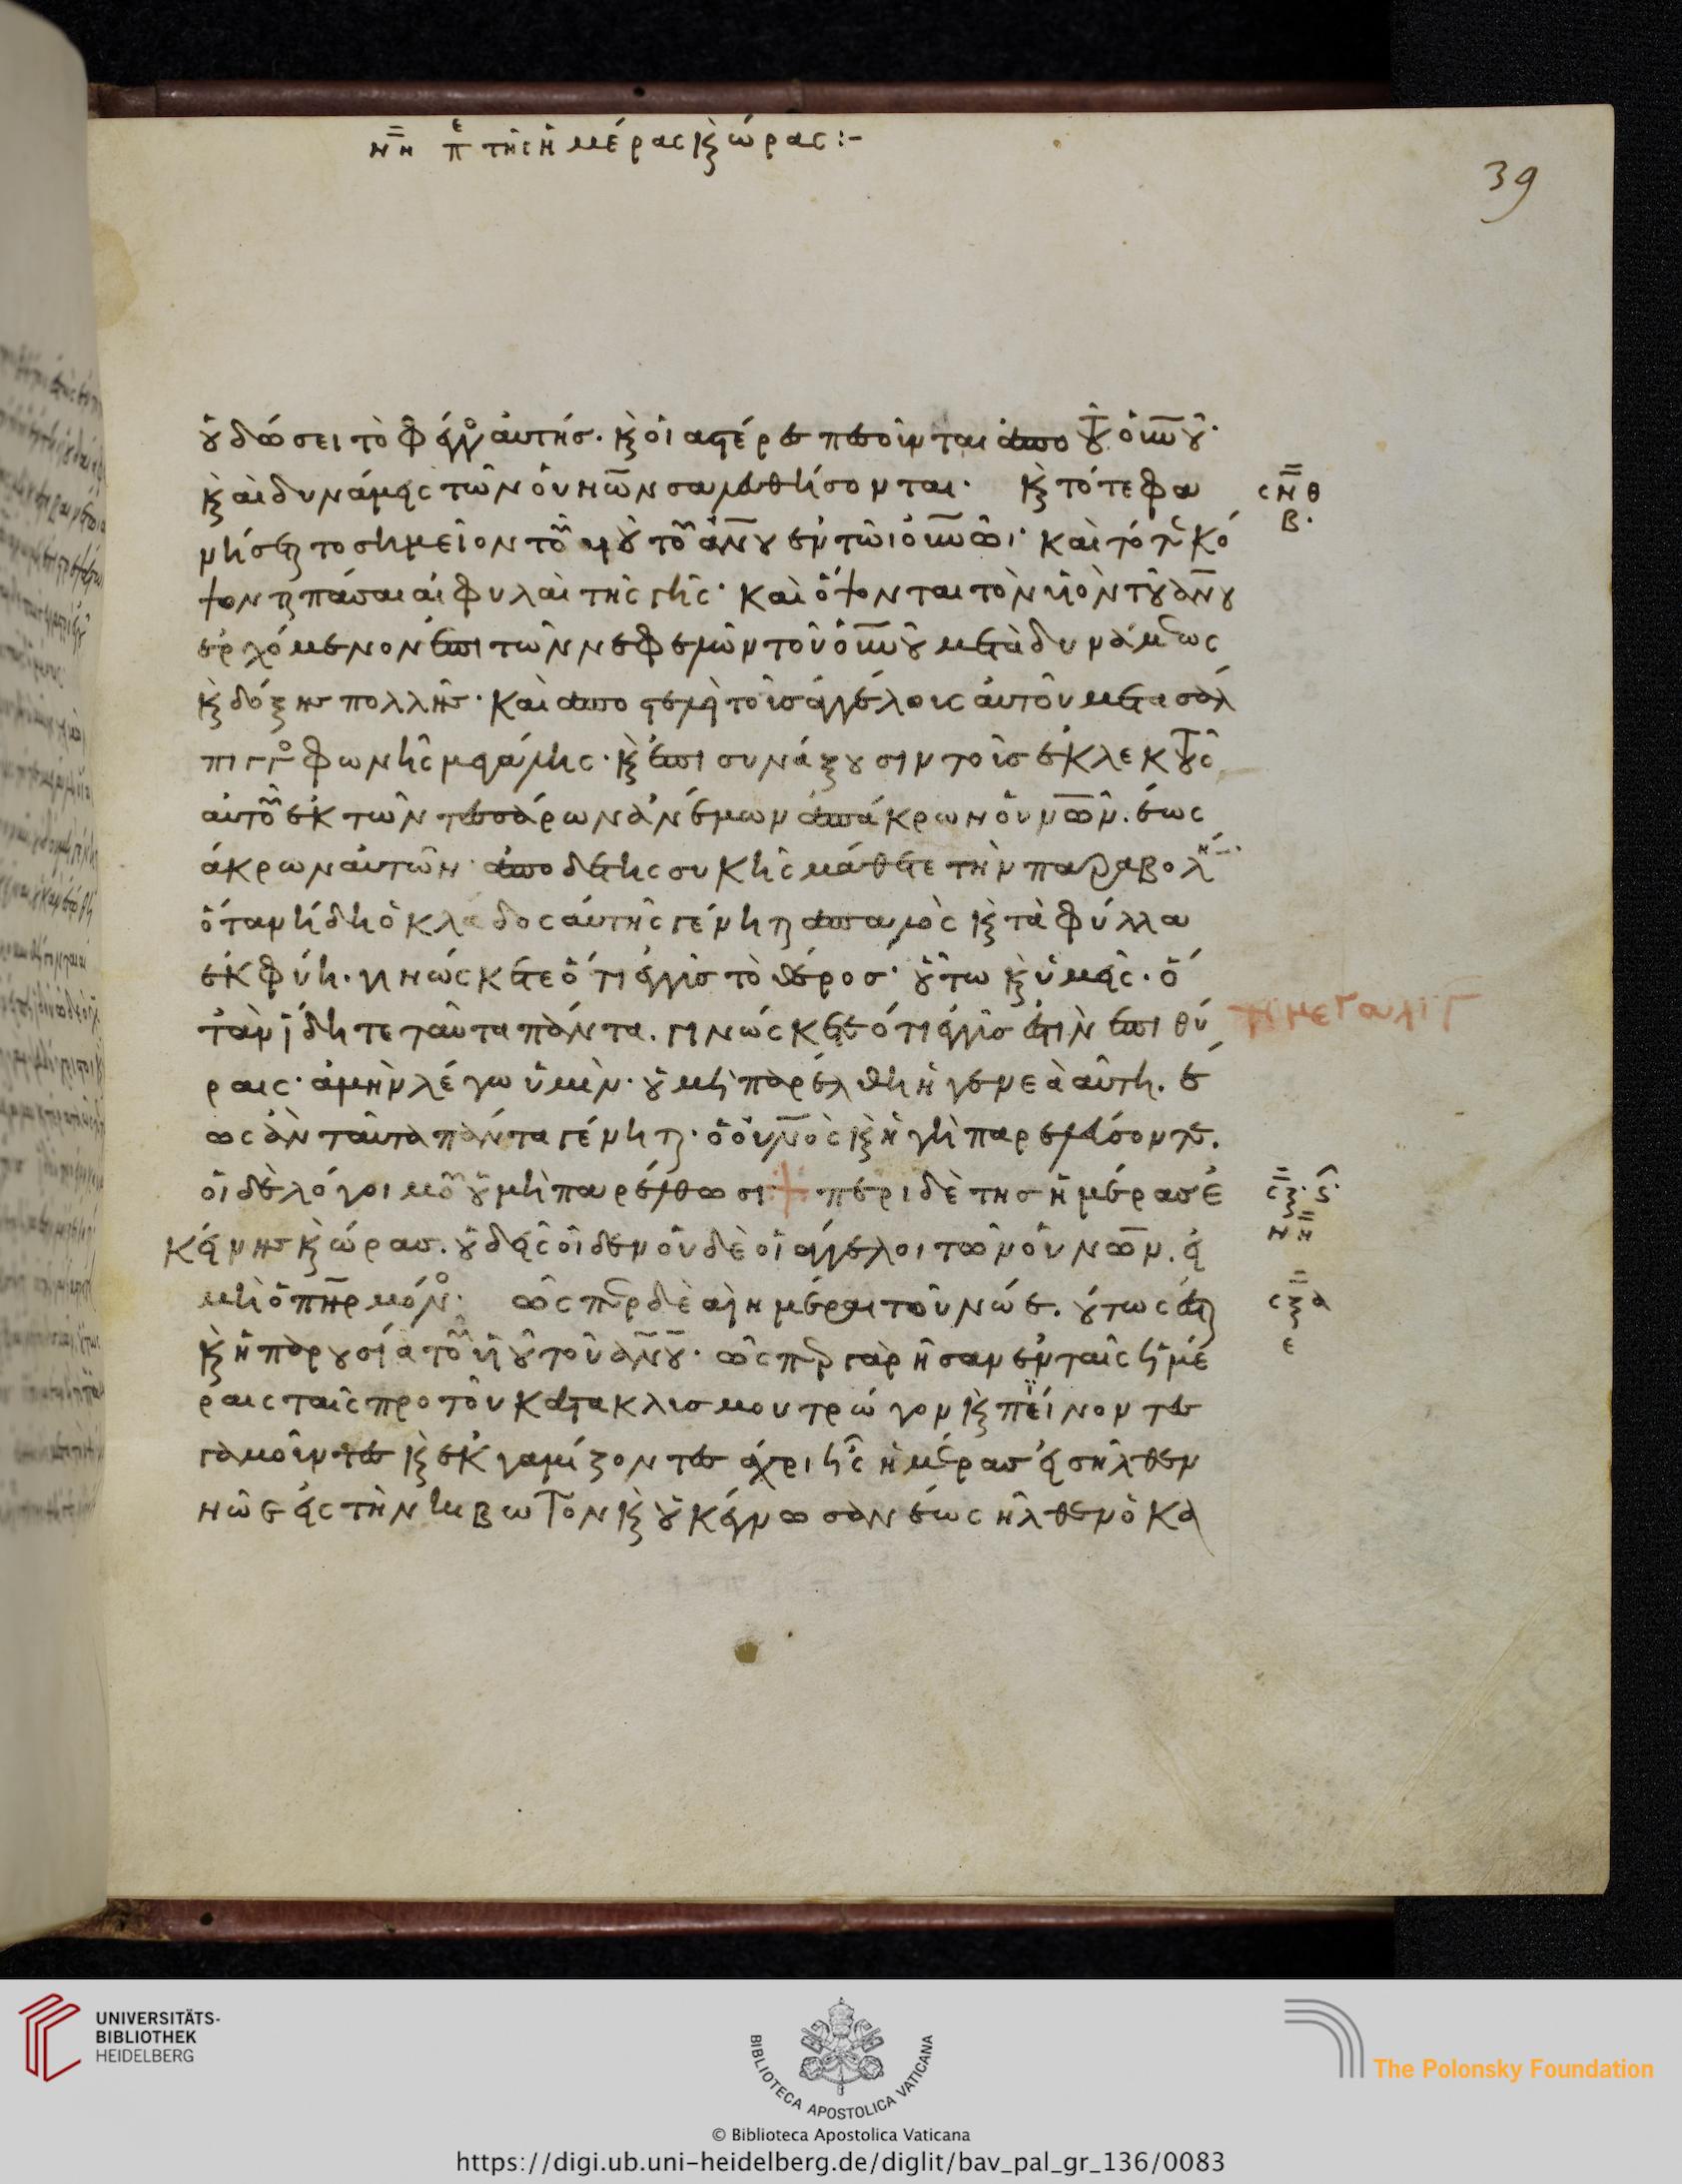 νη πε τῆς ἡμέρας κ̀ ὥρας :-
39
οὐ δώσει τὸ φέγγο αὐτῆσ· κ̀ οἱ ἀστέρες πεσοῦνται ἀπο τοῦ οὐνοῦ·
κ̀ αἱ δυνάμεις τῶν οὐνῶν σαλευθήσονται· κ̀ τότε φα
νήσεται το σημεῖον τοῦ υἱοῦ τοῦ ἀνου ἐν τῶι οὐνῶι· καὶ τότε κό
ψονται πάσαι αἱ φυλαὶ τῆς γῆς· καὶ ὄψονται τὸν υἱὸν τοῦ ἀνου
ἐρχόμενον ἐπι τῶν νεφελῶν τοῦ οὐνοῦ μετὰ δυνάμεως
κ̀ δόξης πολλῆς· καὶ ἀποστελεῖ τοῖς ἀγγέλοις αὐτοῦ μετα σάλ
πιγγο φωνῆς μεγάλης· κ̀ ἐπισυνάξουσιν τοῖς ἐκλεκτοῦς
αὐτοῦ ἐκ τῶν τεσσάρων ἀνέμων ἀπάκρων οὐνῶν. ἕως
ἄκρων αὐτῶν· ἀπο δε τῆς συκῆς μάθετε τὴν παραβολὴν·
ὅταν ἤδη ὁ κλάδος αὐτῆς γένηται ἁπαλὸς κ̀ τὰ φύλλα
ἐκφύη. γινώσκετε ὅτι ἐγγὺς τὸ θέρος· οὕτω κ̀ ὑμεῖς· ὅ
ταν ἴδητε ταῦτα πάντα. γινώσκετε ὅτι ἐγγύς ἐστὶν ἐπι θύ
ραις· ἀμὴν λέγω ὑμὶν· οὐ μὴ παρέλθη ἡ γενεὰ αὕτη. ἕ
ως ἂν ταῦτα πάντα γένηται· ὁ οὐνὸς κ̀ ἡ γὴ παρελεύσονται.
οἱ δε λόγοι μοῦ οὐ μὴ παρέλθωσι + περι δὲ της ἡμέρας ἐ
κείνης κ̀ ὥρας. οὐδεὶς οἶδεν οὐδὲ οἱ ἄγγελοι τῶν οὐνῶν. εἰ
μὴ ὁ πηρ μόνο· ὥσπερ δὲ αἱ ἡμέραι τοῦ νώε. οὕτως ἔσται
κ̀ ἡ παρουσία τοῦ υἱοῦ τοῦ ἀνοῦ· ὥσπερ γὰρ ἦσαν ἐν ταῖς ἡμέ
ραις ταῖς προ τοῦ κατακλισμου τρώγον κ̀ πείνοντες
γαμοῦντες κ̀ ἐκγαμίζοντες ἄχρι ἧς ἡμέρας εἰσῆλθεν
νῶε εἰς τὴν κιβωτὸν κ̀ οὐκ ἔγνωσαν ἕως ἦλθεν ὁ κα
σνθ
β·
σξ· ϛ
νη
σξα
ε
UNIVERSITÄTS-
BIBLIOTHEK
HEIDELBERG
BIBLIOTECA APOSTOLICA VATICANA
The Polonsky Foundation
© Biblioteca Apostolica Vaticana
https://digi.ub.uni-heidelberg.de/diglit/bav_pal_gr_136/0083